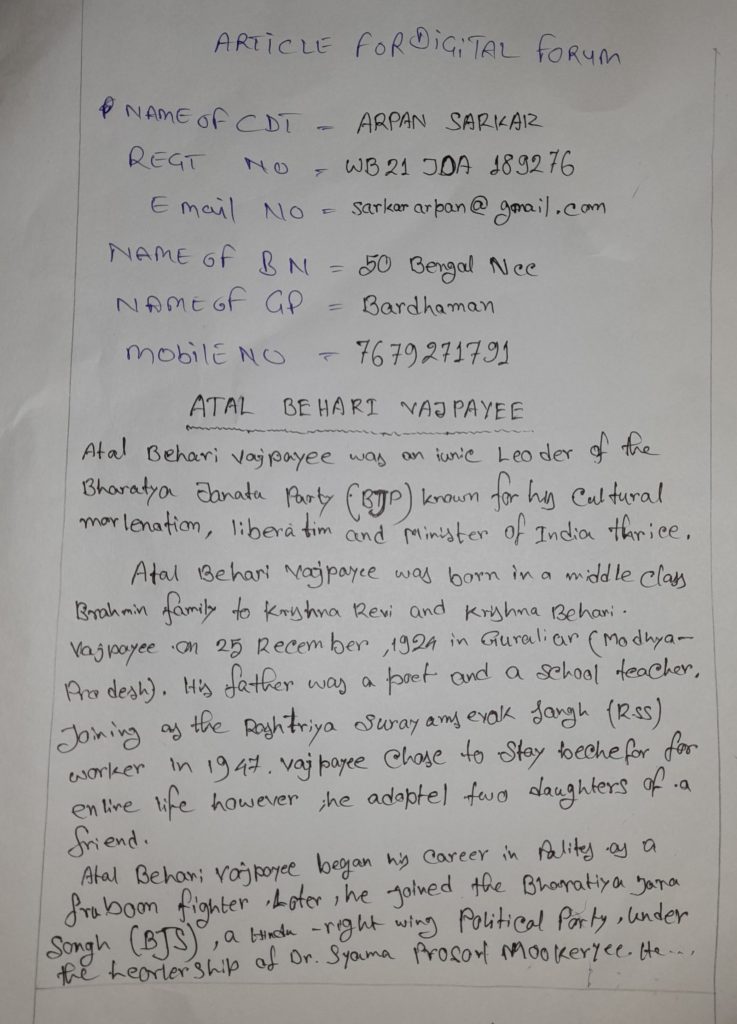 ARTICLE FOR DIGITAL FORUM
NAME OF CDT - ARPAN SARKAR
REGT NO - WB21 JDA 189276
Email NO = sarkararpan@gmail.com
NAME OF BN = 50 Bengal Ncc
NAME OF GP = Bardhaman
MOBILE NO - 7679271791
ATAL BEHARI VAJPAYEE
Atal Behari Vajpayee was an iunic Leoder of the
Bharatya Janata Party (BJP) known for his Cultural
morlenation, libera tim and Minister of India thrice.
Atal Behari Vajpayee was born in a middle class
Brahmin family to Kryshna Revi and Kryshna Behari.
Vajpayee on 25 Recember, 1924 in Guraliar (Modhya-
Pradesh). His father was a poet and a school teacher.
Joining as the Rashtriya Surayamsevak Sangh (RSS)
worker in 1947. Vajpayee Chose to Stay bechefor for
enlire life however, he adoptel two daughters of a
friend.
Atal Behari Vajpoyee began his career in Pality as a
fraboom fighter. Loter, he joined the Bharatiya Jana
Songh (BJS), a Hindu-right wing Political Party, under
the heorlership of Dr. Syama Prosorl Mookeryee. He...